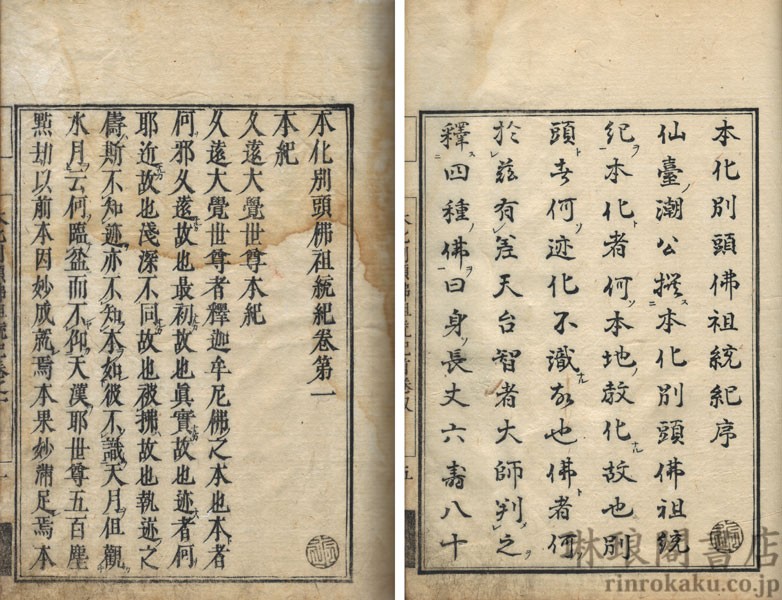 本化別頭佛祖統紀序
仙臺潮公撰本化別頭佛祖統
紀本化者何本地教化故也別
頭者何迹化不識故也佛者何
於茲有差天台智者大師判之
釋四種佛曰身長丈六壽八十
本化別頭佛祖統紀卷第一
本紀
久遠大覺世尊本紀
久遠大覺世尊者釋迦牟尼佛之本也本者
何邪久遠故也最初故也眞實故也迹者何
耶近故也淺深不同故也被拂故也執迹之
儔斯不知迹亦不知本如彼不識天月但觀
水月云何臨盆而不仰天漢耶世尊五百塵
點劫以前本因妙成就焉本果妙滿足焉本
琳琅閣書店
rinrokaku.co.jp